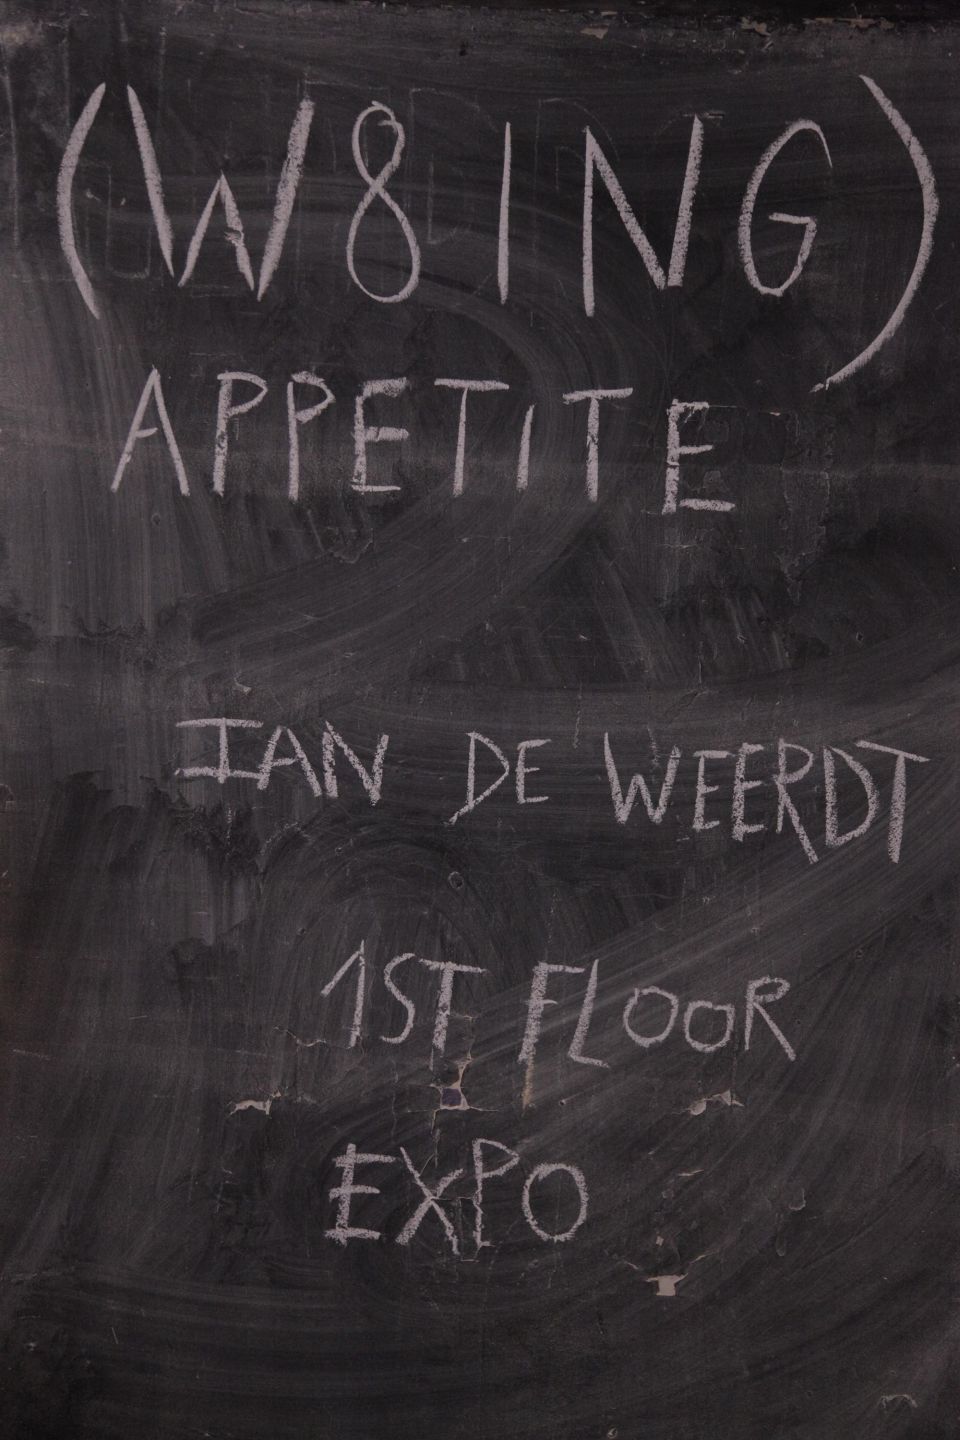 (W8ING)
APPETITE
IAN DE WEERDT
1ST FLOOR
EXPO